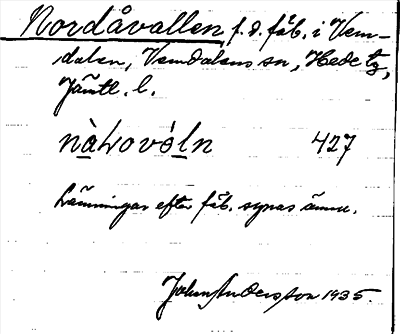 Nordåvallen, f.d. fäb. i Vem-
dalen, Vemdalens sn, Hede tg,
Jämtl. l.
427
Lämningar efter fäb. synas ännu.
John Andersson 1935.